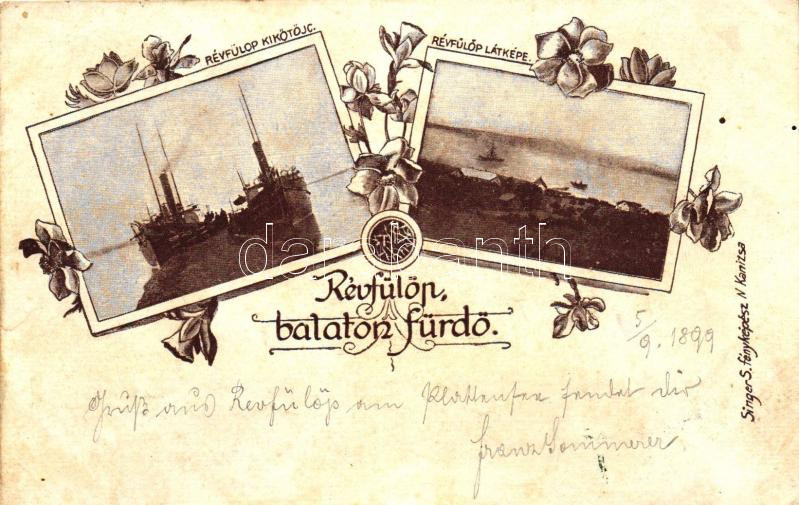 RÉVFÜLOP KIKÖTÖJC.
RÉVFÜLÖP LÁTKÉPE.
darabanth
Révfülöp,
balaton fürdö.
5/9. 1899
Gruß aus Revfülöp am Plattensee sendet dir
Franz Sommerer
Singer S. fényképész N Kanizsa